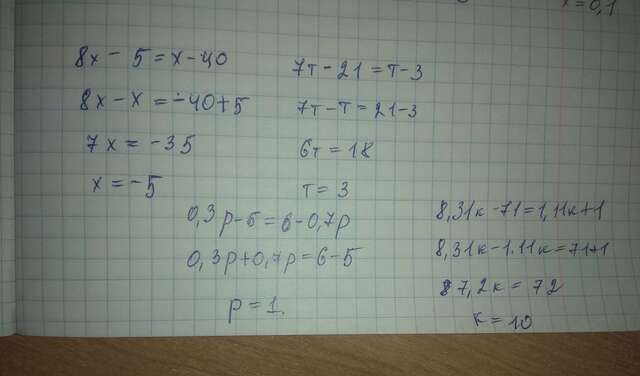 x=0,1
8x-5=x-40
8x-x=-40+5
7x=-35
x=-5
7т-21=т-3
7т-т=21-3
6т=18
т=3
0,3р-5=6-0,7р
0,3р+0,7р=6-5
р=1.
8,31к-71=1,11к+1
8,31к-1.11к=71+1
7,2к=72
к=10